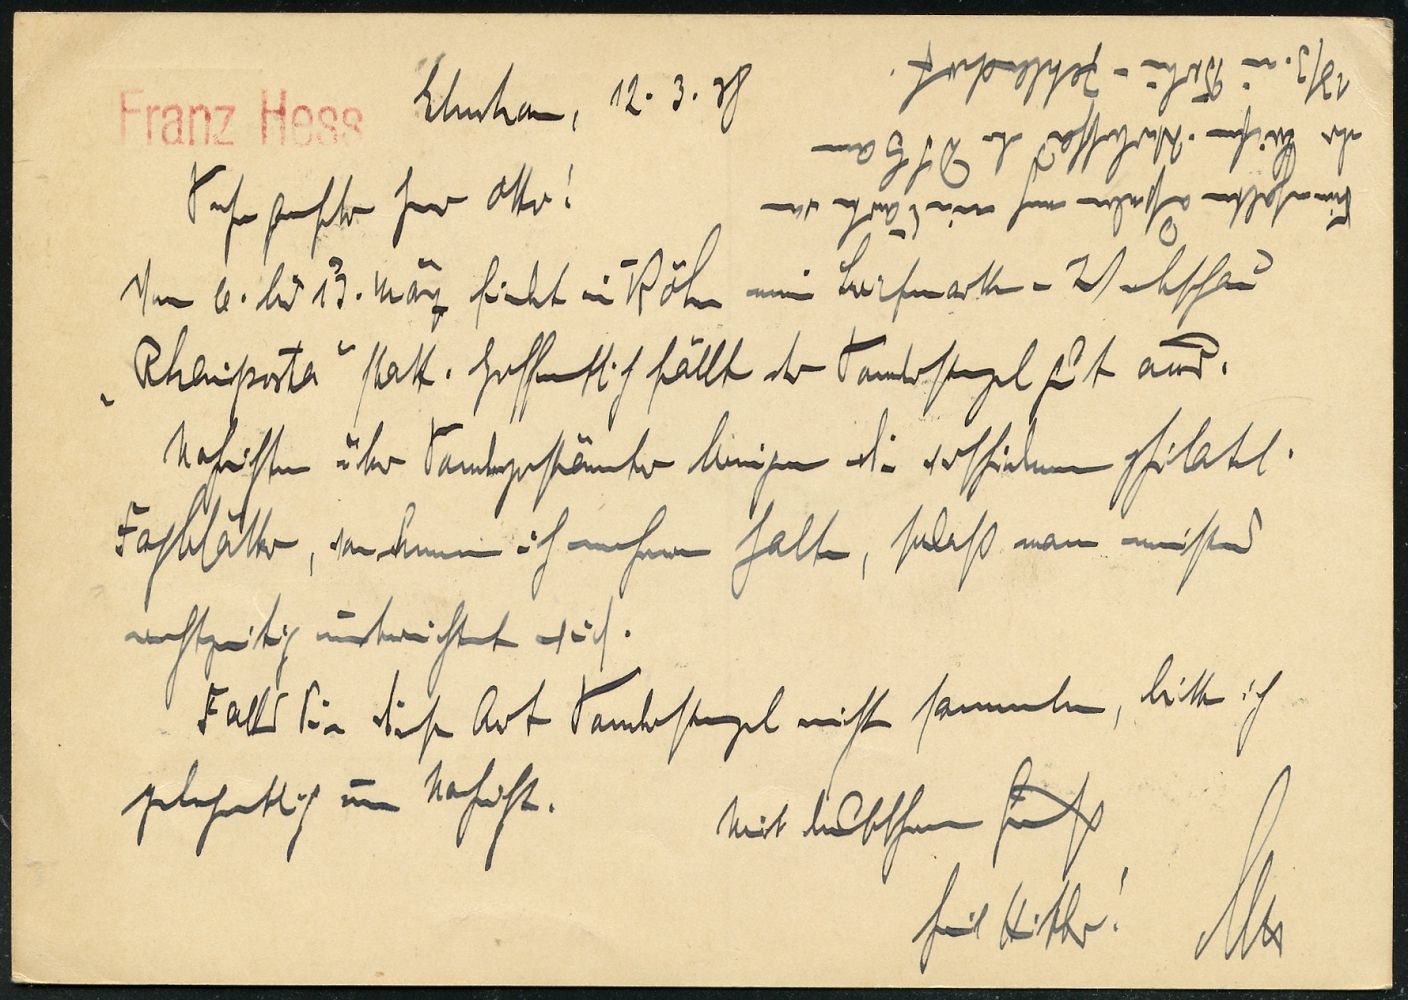 Franz Hess
12. 3. 38
Sehr geehrter Herr Otto!
Vom 6. bis 13. März findet in Köln eine Briefmarken-Werbeschau
„Rheinposta" statt. Hoffentlich fällt der Sonderstempel gut aus.
Nachrichten über Sonderpostämter bringen die verschiedenen philatel.
Fachblätter, von denen ich mehrere halte, sodaß man meistens
rechtzeitig unterrichtet wird.
Falls Sie diese Art Sonderstempel nicht sammeln, bitte ich
gelegentlich um Nachricht.
Mit deutschem Gruß
Heil Hitler!
13/3. in Berlin-Zehlendorf.